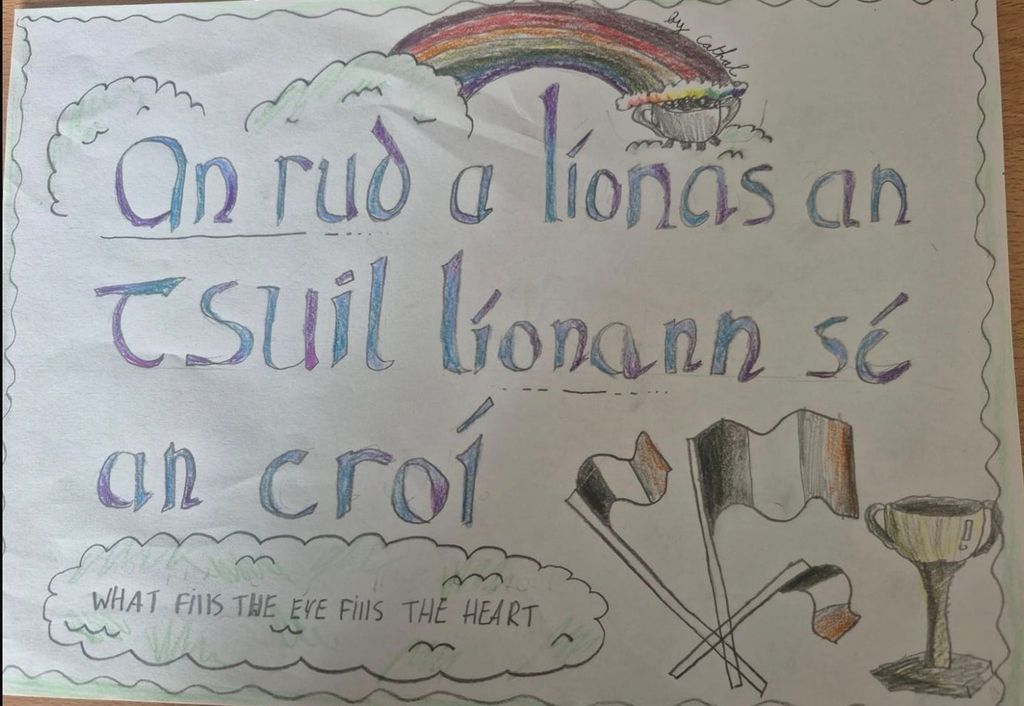 by Cathal
An rud a líonas an
tsuil líonann sé
an croí
WHAT Fills THE EYE Fills THE HEART